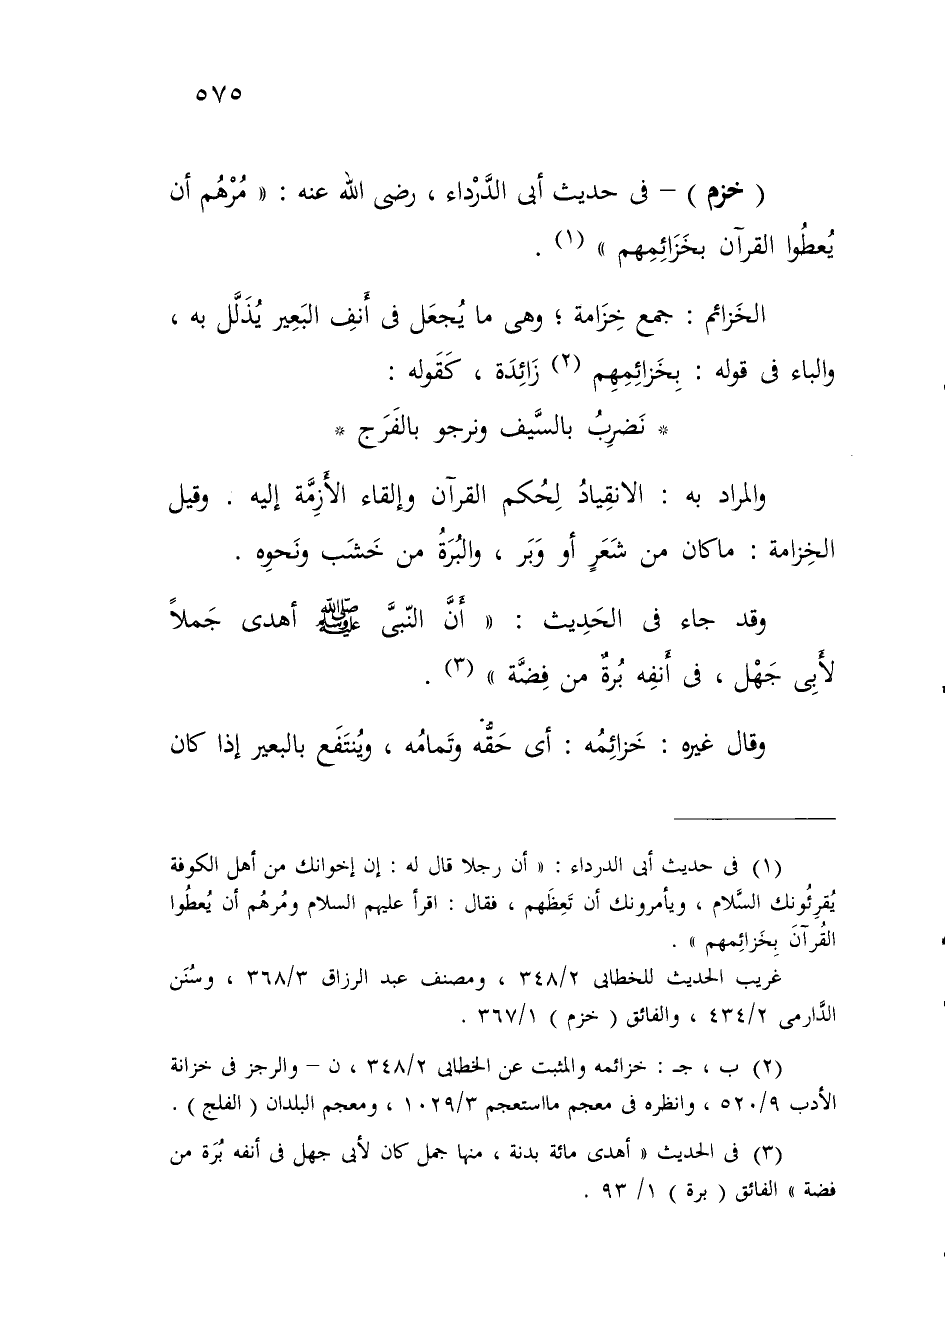 ٥٧٥
( خزم ) – فى حديث أبى الدَّرْداء ، رضى الله عنه : « مُرْهُم أن
يُعطُوا القرآن بخَزَائِمِهم » (١) .
الخَزائم : جمع خِزَامة ؛ وهى ما يُجعَل فى أَنفِ البَعِير يُذَلَّل به ،
والباء فى قوله : بِخَزائِمِهِم (٢) زَائِدَة ، كَقَوله :
* نَضرِبُ بالسَّيف ونرجو بالفَرَج *
والمراد به : الانقِيادُ لِحُكم القرآن وإلقاء الأَزِمَّة إليه . وقيل
الخِزامة : ماكان من شَعَرٍ أو وَبَر ، والبُرَةُ من خَشَب ونَحوِه .
وقد جاء فى الحَدِيث : « أَنَّ النّبىَّ ﷺ أهدى جَملاً
لأَبِى جَهْل ، فى أَنفِه بُرةٌ من فِضَّة » (٣) .
وقال غيره : خَزائِمُه : أى حَقُّه وتَمامُه ، ويُنتَفَع بالبعير إذا كان
(١) فى حديث أبى الدرداء : « أن رجلا قال له : إن إخوانك من أهل الكوفة
يُقرِئُونك السَّلام ، ويأمرونك أن تَعِظَهم ، فقال : اقرأ عليهم السلام ومُرهُم أن يُعطُوا
القُرآنَ بِخَزائِمهم » .
غريب الحديث للخطابى ٣٤٨/٢ ، ومصنف عبد الرزاق ٣٦٨/٣ ، وسُنَن
الدَّارمى ٤٣٤/٢ ، والفائق ( خزم ) ٣٦٧/١ .
(٢) ب ، جـ : خزائمه والمثبت عن الخطابى ٣٤٨/٢ ، ن – والرجز فى خزانة
الأدب ٥٢٠/٩ ، وانظره فى معجم مااستعجم ١٠٢٩/٣ ، ومعجم البلدان ( الفلج ) .
(٣) فى الحديث « أهدى مائة بدنة ، منها جمل كان لأبى جهل فى أنفه بُرَة من
فضة » الفائق ( برة ) ١/ ٩٣ .